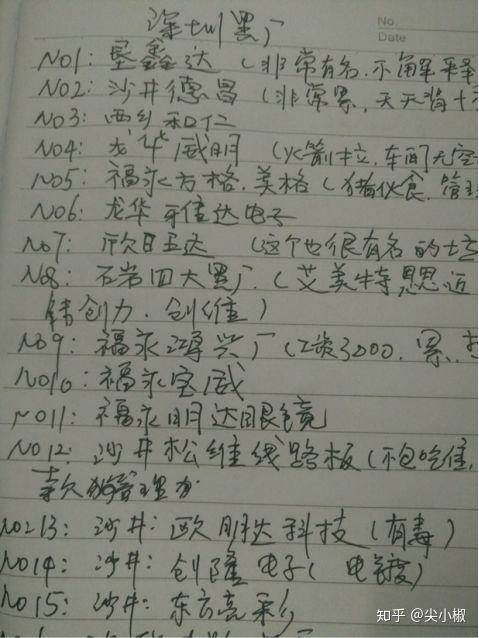 深圳黑厂
No.
Date
NO1：垦鑫达（非常有名，不解释
NO2：沙井德昌（非常累，天天
NO3：西乡和仁
NO4：龙华威明（火箭拉，车间无空
NO5：福永方格，美格（猪伙食，管理
NO6：龙华雅达电子
NO7：欣旺达（这个也很有名的
NO8：石岩四大黑厂，（艾美特，恩近
创力，创维）
NO9：福永鸿兴厂（工资3000，累，
NO10：福永宝威
NO11：福永明达眼镜
NO12：沙井松维线路板（不包吃住，
管理
NO13：沙井：欧朋达科技（有毒）
NO14：沙井：创隆电子（电镀）
NO15：沙井：东方亮彩
知乎 @尖小椒